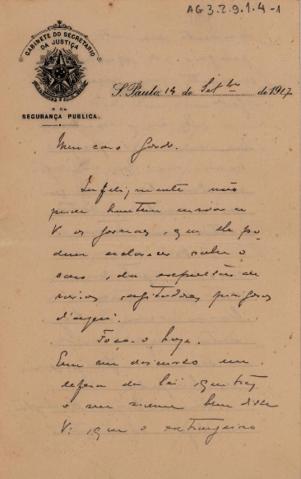 AG 3.2.9.1.4-1
GABINETE DO SECRETARIO
DA JUSTIÇA
E DA
SEGURANÇA PUBLICA.
S. Paulo, 14 de Setbro de 1917
Meu caro Gordo.
Infelizmente não
pude hontem enviar a
V. os jornaes, que lhe po-
dem esclarecer sobre o
caso, da expulsão de
varios agitadores perigosos
d'aqui.
Faço-o hoje.
Em um discurso em
defesa da lei, que traz
o seu nome bem disse
V. que o extrangeiro